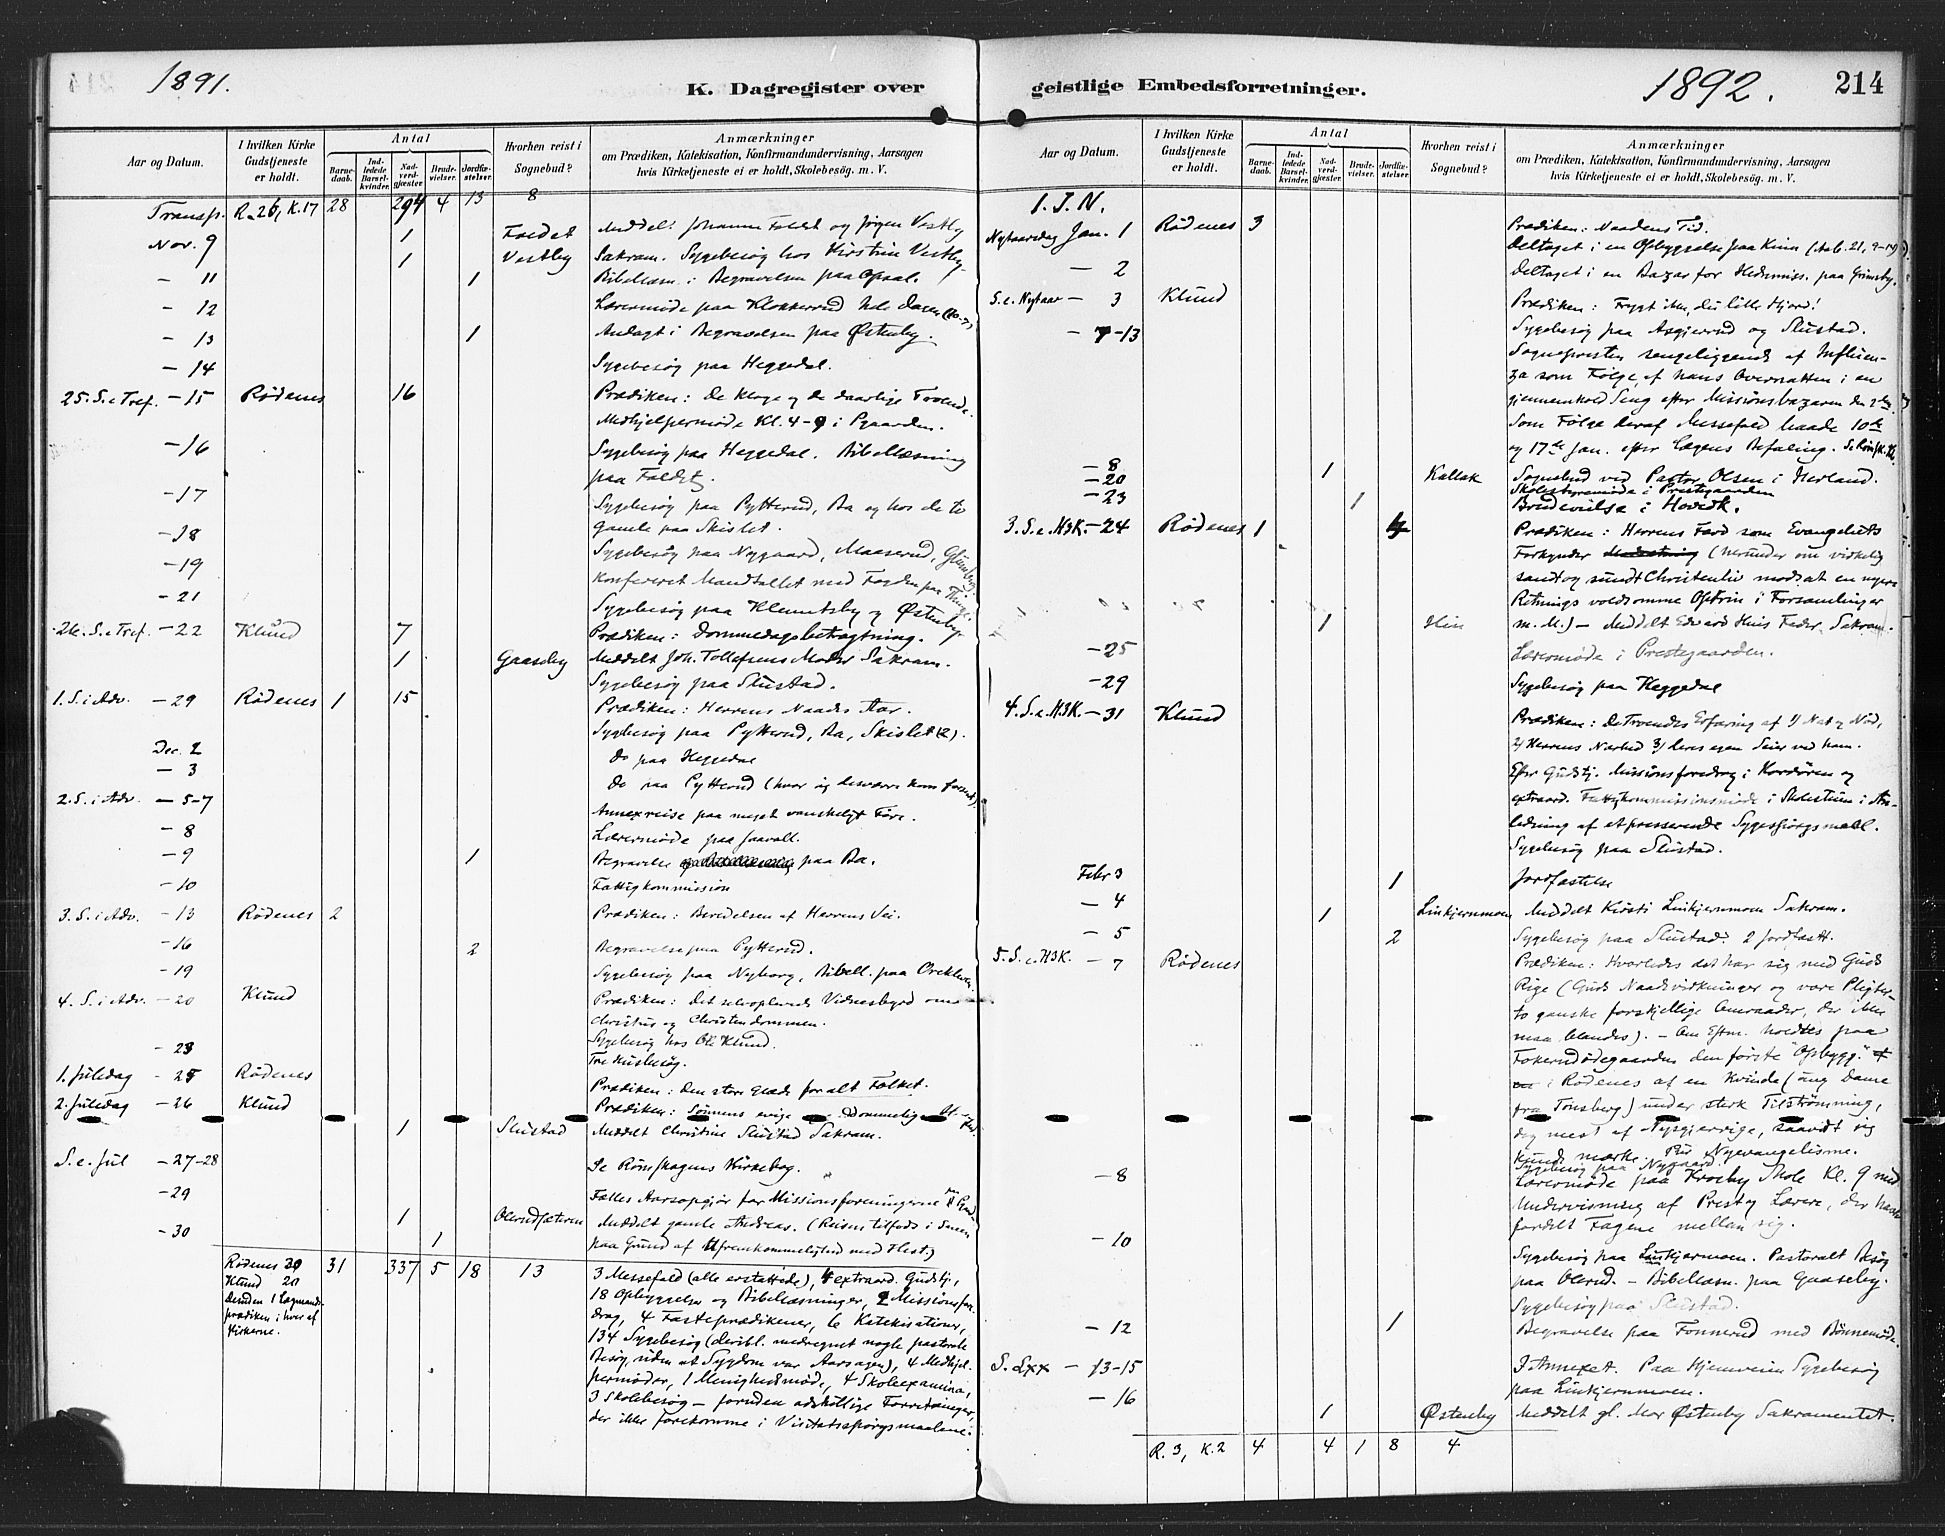 1891.
K. Dagregister over
Aar og Datum.
I hvilken Kirke Gudstjeneste er holdt.
Antal
Barnedaab.
Indledede Barselkvinder.
Nadverdgjæster
Brudevielser.
Jordfæstelser.
Hvorhen reist i Sognebud?
Anmærkninger
om Prædiken, Katekisation, Konfirmandundervisning, Aarsagen
hvis Kirketjeneste ei er holdt, Skolebesøg. m. V.
Transp. R. 26, K. 17 28 294 4 13 8
Nov. 9 1 Foldet Meddelt Johanne Foldet og Jørgen Vestby
1 Vestby Sakram. Sygebesøg hos Kirstine Vestby.
- 11 1 Bibellæsn. i Begravelsen paa Opsal.
- 12 Lærermøde paa Klokkerud hele Dagen
- 13 1 Andagt i Begravelsen paa Østenby.
- 14 Sygebesøg paa Heggedal.
25. S. e Tref. - 15 Rødenes 16 Prædiken: De kloge og de daarlige Troende.
Medhjelpermøde Kl. 4-9 i Pgaarden.
- 16 Sygebesøg paa Heggedal. Bibellæsning
paa Foldet.
- 17 Sygebesøg paa Pytterud, Ba og hos de to
gamle paa Skislet.
- 18 Sygebesøg paa Nygaard, Maaserud,
- 19 Konfereret Mandtallet med Fogden paa Thinget.
- 21 Sygebesøg paa Klemetsby og Østenby.
26. S. e Tref. - 22 Klund 7 Prædiken: Dommedagsbetragtning.
1 Gaaseby Meddelt Joh. Tollefsens Moder Sakram.
Sygebesøg paa Slustad.
1. S. i Adv. - 29 Rødenes 1 15 Prædiken: Herrens Naades Aar.
Sygebesøg paa Pytterud, Ba, Skislet (2).
Dec. 2 Do paa Heggedal
- 3 Do paa Pytterud (hvor jeg desværre kom forsent)
2. S. i Adv. - 5-7 Annexreise paa meget vanskeligt Føre.
- 8 Lærermøde paa Jaavall.
- 9 1 Begravelse paa Ba.
- 10 Fattigkommission
3. S. i Adv. - 13 Rødenes 2 Prædiken: Beredelsen af Herrens Vei.
- 16 2 Begravelse paa Pytterud.
- 19 Sygebesøg paa Nyborg, Bibell. paa
4. S. i Adv. - 20 Klund Prædiken: Det selvoplevede Vidnesbyrd om
Christus og Christendommen.
Sygebesøg hos Ole Klund.
- 23 Tre Husbesøg.
1. Juledag - 25 Rødenes Prædiken: Den store Glæde for alt Folket.
2. Juledag - 26 Klund Prædiken: Sønnens evige
1 Slustad Meddelt Christine Slustad Sakram.
S. e. Jul - 27-28 Se Rømskogens Kirkebog.
- 29 Fælles Aarsopgjør for Missionsforeningerne
1 Olerudsæteren Meddelt gamle Andreas. (Reisen tilfods i Sneen
- 30 1 paa Grund af Ufremkommelighed med Hest.)
Rødenes 30 31 337 5 18 13 3 Messefald (alle erstattede), 4 extraord. Gudstj.,
Klund 20 18 Opbyggelser og Bibellæsninger, 2 Missionsfore-
Desuden 1 Lægmands- drag, 4 Fasteprædikener, 6 Katekisationer,
prædiken i hver af 134 Sygebesøg (deribl. medregnet nogle pastorale
Kirkerne. Besøg, uden at Sygdom var Aarsagen), 4 Medhjel-
permøder, 1 Menighedsmøde, 4 Skoleexamina,
3 Skolebesøg - foruden adskillige Forretninger,
der ikke forekomme i Visitatsspørgsmaalene.
geistlige Embedsforretninger.
1892.
214
Aar og Datum.
I hvilken Kirke Gudstjeneste er holdt.
Antal
Barnedaab.
Indledede Barselkvinder.
Nadverdgjæster
Brudevielser.
Jordfæstelser.
Hvorhen reist i Sognebud?
Anmærkninger
om Prædiken, Katekisation, Konfirmandundervisning, Aarsagen
hvis Kirketjeneste ei er holdt, Skolebesøg. m. V.
I. J. N.
Nytaarsdag Jan. 1 Rødenes 3 Prædiken: Naadens Tid.
Deltaget i en Opbyggelse paa Kinn (Aab. 21, 9-14).
- 2 Deltaget i en Bazar for Hedemiss. paa Grimsby.
S. e. Nytaar - 3 Klund Prædiken: Frygt ikke, du lille Hjord!
- 7-13 Sygebesøg paa Asgjerrud og Slustad.
Sognepresten sengeliggende af Influen-
za som Følge af hans Overnatten i en
gjennemkold Seng efter Missionsbazaren den 2den
Som Følge deraf Messefald baade 10de
og 17de Jan. efter Lægens Befaling.
- 8 1 Kallak Sognebud ved Pastor Olsen i Herland.
- 20 Skolestyremøde i Prestegaarden
- 23 1 Brudevielse i Hovedk.
3. S. e. H3K. - 24 Rødenes 1 4 Prædiken: Herrens Færd som Evangeliets
Forkynder (herunder om virkelig
sandt og sundt Christenliv modsat en nyere
Retnings voldsomme Optrin i Forsamlinger
1 Hin m. M.) - Meddelt Edvard Hins Fader Sakram.
- 25 Lærermøde i Prestegaarden.
- 29 Sygebesøg paa Heggedal
4. S. e. H3K. - 31 Klund Prædiken: De Troendes Erfaring af 1) Nat og Nød,
2) Herrens Nærhed 3) deres egen Seier ved ham.
Efter Gudstj. Missionsforedrag i Kordøren og
extraord. Fattigkommissionsmøde i Skolestuen i An-
ledning af et presserende Sygespørgsmaal.
Sygebesøg paa Slustad.
Febr 3 1 Jordfæstelse
- 4 1 Linkjernmoen Meddelt Kirsti Linkjernmoen Sakram.
- 5 2 Sygebesøg paa Slustad. 2 Jordfæst.
5. S. e. H3K. - 7 Rødenes Prædiken: Hvorledes det har sig med Guds
Rige (Guds Naadsvirkninger og vore Pligter
to ganske forskjellige Omraader, der ikke
maa blandes). - Om Eftm. holdtes paa
Fokerudødegaarden den første "Opbygg."
i Rødenes af en Kvinde (ung Dame
fra Tønsberg) under sterk Tilstrømning,
dog mest af Nysgjerrige, saavidt jeg
kunde mærke. Ren Nyevangelisme.
Sygebesøg paa Nygaard.
- 8 Lærermøde paa Krosby Skole Kl. 9 med
Undervisning af Prest og Lærere, der havde
fordelt Fagene mellan sig.
- 10 Sygebesøg paa Linkjernmoen. Pastoralt Besøg
paa Olerud. - Bibellæsn. paa Gaaseby.
Sygebesøg paa Slustad.
- 12 1 Begravelse paa Fonnerud med Bønnemøde.
S. Lxx - 13-15 I Annexet. Paa Hjemveien Sygebesøg
paa Linkjernmoen.
- 16 1 Østenby Meddelt gl. Mor Østenby Sakramentet.
R. 3, K. 2 4 4 1 8 4